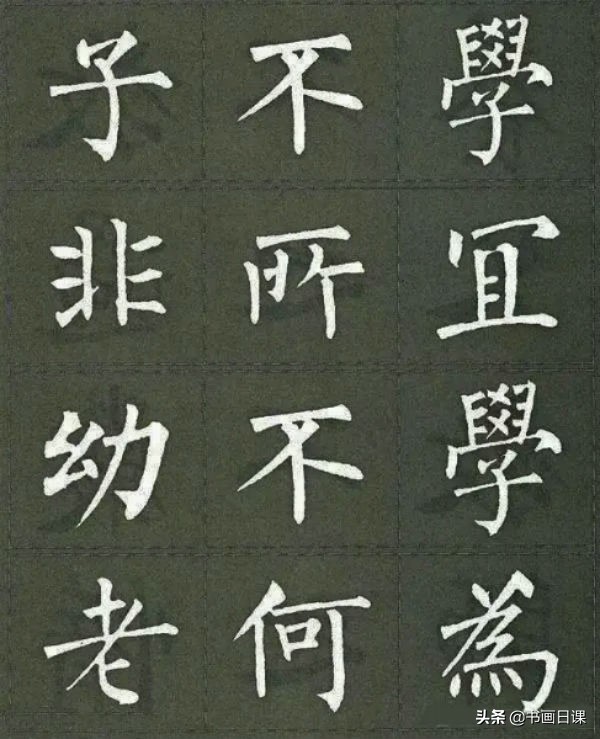 子不學
非所冝
幼不學
老何為
头条 @书画日课